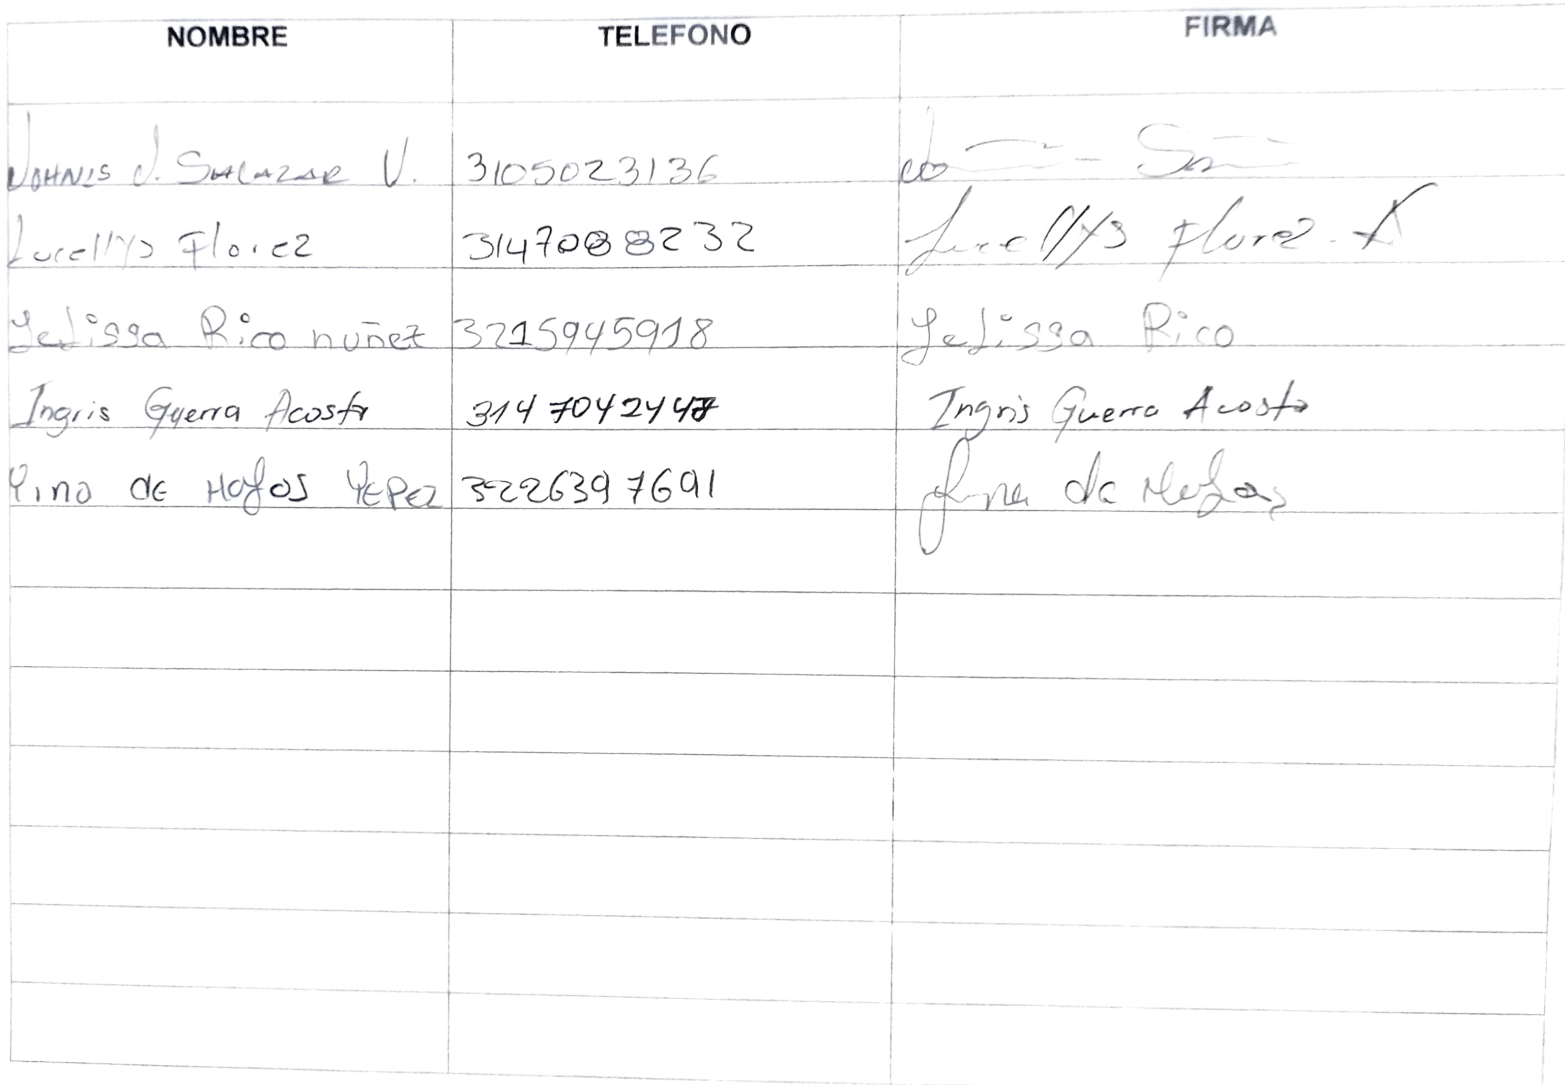 NOMBRE TELEFONO FIRMA
JOHNIS J. SALAZAR V. 3105023136
Lucellys Florez 3147088232 Lucellys Florez. A
Yelissa Rico nuñez 3215945918 Yelissa Rico
Ingris Guerra Acosta 3147042447 Ingris Guerra Acosta
Yina de Hoyos YEPEZ 3226397691 Yina de Hoyos